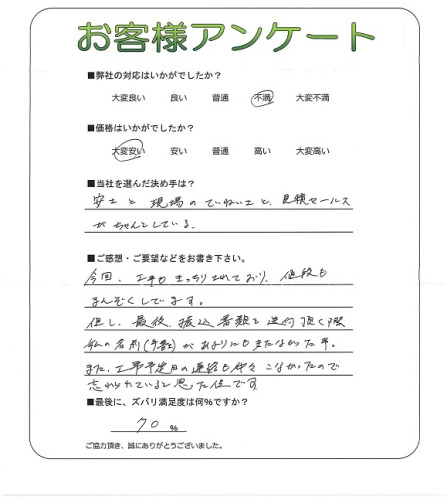 お客様アンケート
■弊社の対応はいかがでしたか？
大変良い 良い 普通 不満 大変不満
■価格はいかがでしたか？
大変安い 安い 普通 高い 大変高い
■当社を選んだ決め手は？
安さと現場のていねいさと、見積セールス
がちゃんとしている。
■ご感想・ご要望などをお書き下さい。
今回、工事もきっちりされており、値段も
まんぞくしてます。
但し、最後、振込書類を送付頂く際
私の名前(字数)があまりにもきたなかった事。
また、工事予定日の連絡も中々こなかったので
忘れられていると思った位です
■最後に、ズバリ満足度は何％ですか？
70 %
ご協力頂き、誠にありがとうございました。